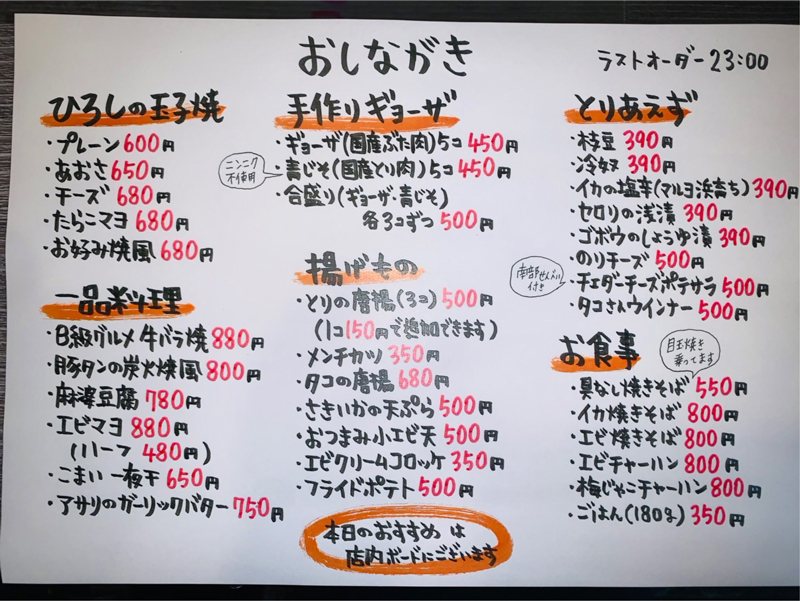 おしながき
ラストオーダー 23:00
ひろしの玉子焼
・プレーン 600円
・あおさ 650円
・チーズ 680円
・たらこマヨ 680円
・お好み焼風 680円
一品料理
・B級グルメ 牛バラ焼 880円
・豚タンの炭火焼風 800円
・麻婆豆腐 780円
・エビマヨ 880円
(ハーフ 480円)
・こまい一夜干 650円
・アサリのガーリックバター 750円
手作りギョーザ
・ギョーザ(国産ぶた肉)5コ 450円
ニンニク
不使用
・青じそ(国産とり肉)5コ 450円
・合盛り(ギョーザ・青じそ)
各3コずつ 500円
揚げもの
・とりの唐揚(3コ) 500円
(1コ150円で追加できます)
・メンチカツ 350円
・タコの唐揚 680円
・さきいかの天ぷら 500円
・おつまみ小エビ天 500円
・エビクリームコロッケ 350円
・フライドポテト 500円
本日のおすすめ は
店内ボードにございます
とりあえず
・枝豆 390円
・冷奴 390円
・イカの塩辛(マルヨ浜育ち) 390円
・セロリの浅漬 390円
・ゴボウのしょうゆ漬 390円
・のりチーズ 500円
南部せんべい
付き
・チェダーチーズポテサラ 500円
・タコさんウインナー 500円
お食事
目玉焼き
乗ってます
・具なし焼きそば 550円
・イカ焼きそば 800円
・エビ焼きそば 800円
・エビチャーハン 800円
・梅じゃこチャーハン 800円
・ごはん(180g) 350円